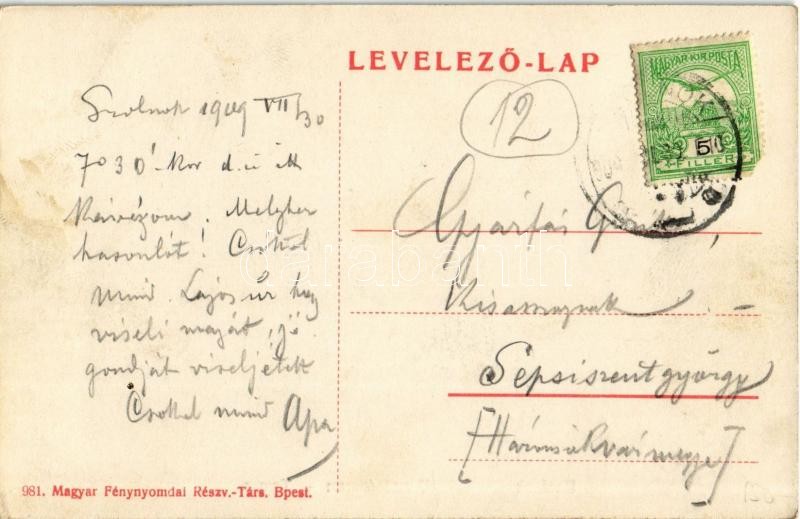 LEVELEZŐ-LAP
MAGYAR KIR. POSTA
5
FILLÉR
12
Szolnok 1909 VII/30
7 o 30'-kor d. u. itt
Kávézom. Melyhez
hasonlót! Csókol
mind. Lajos úr hogy
viseli magát, jó
gondját viseljétek
Csókol mind Apa
Gyárfás
Kisasszonynak
Sepsiszentgyörgy
[Háromszékvármegye]
darabanth
981. Magyar Fénynyomdai Részv.-Társ. Bpest.